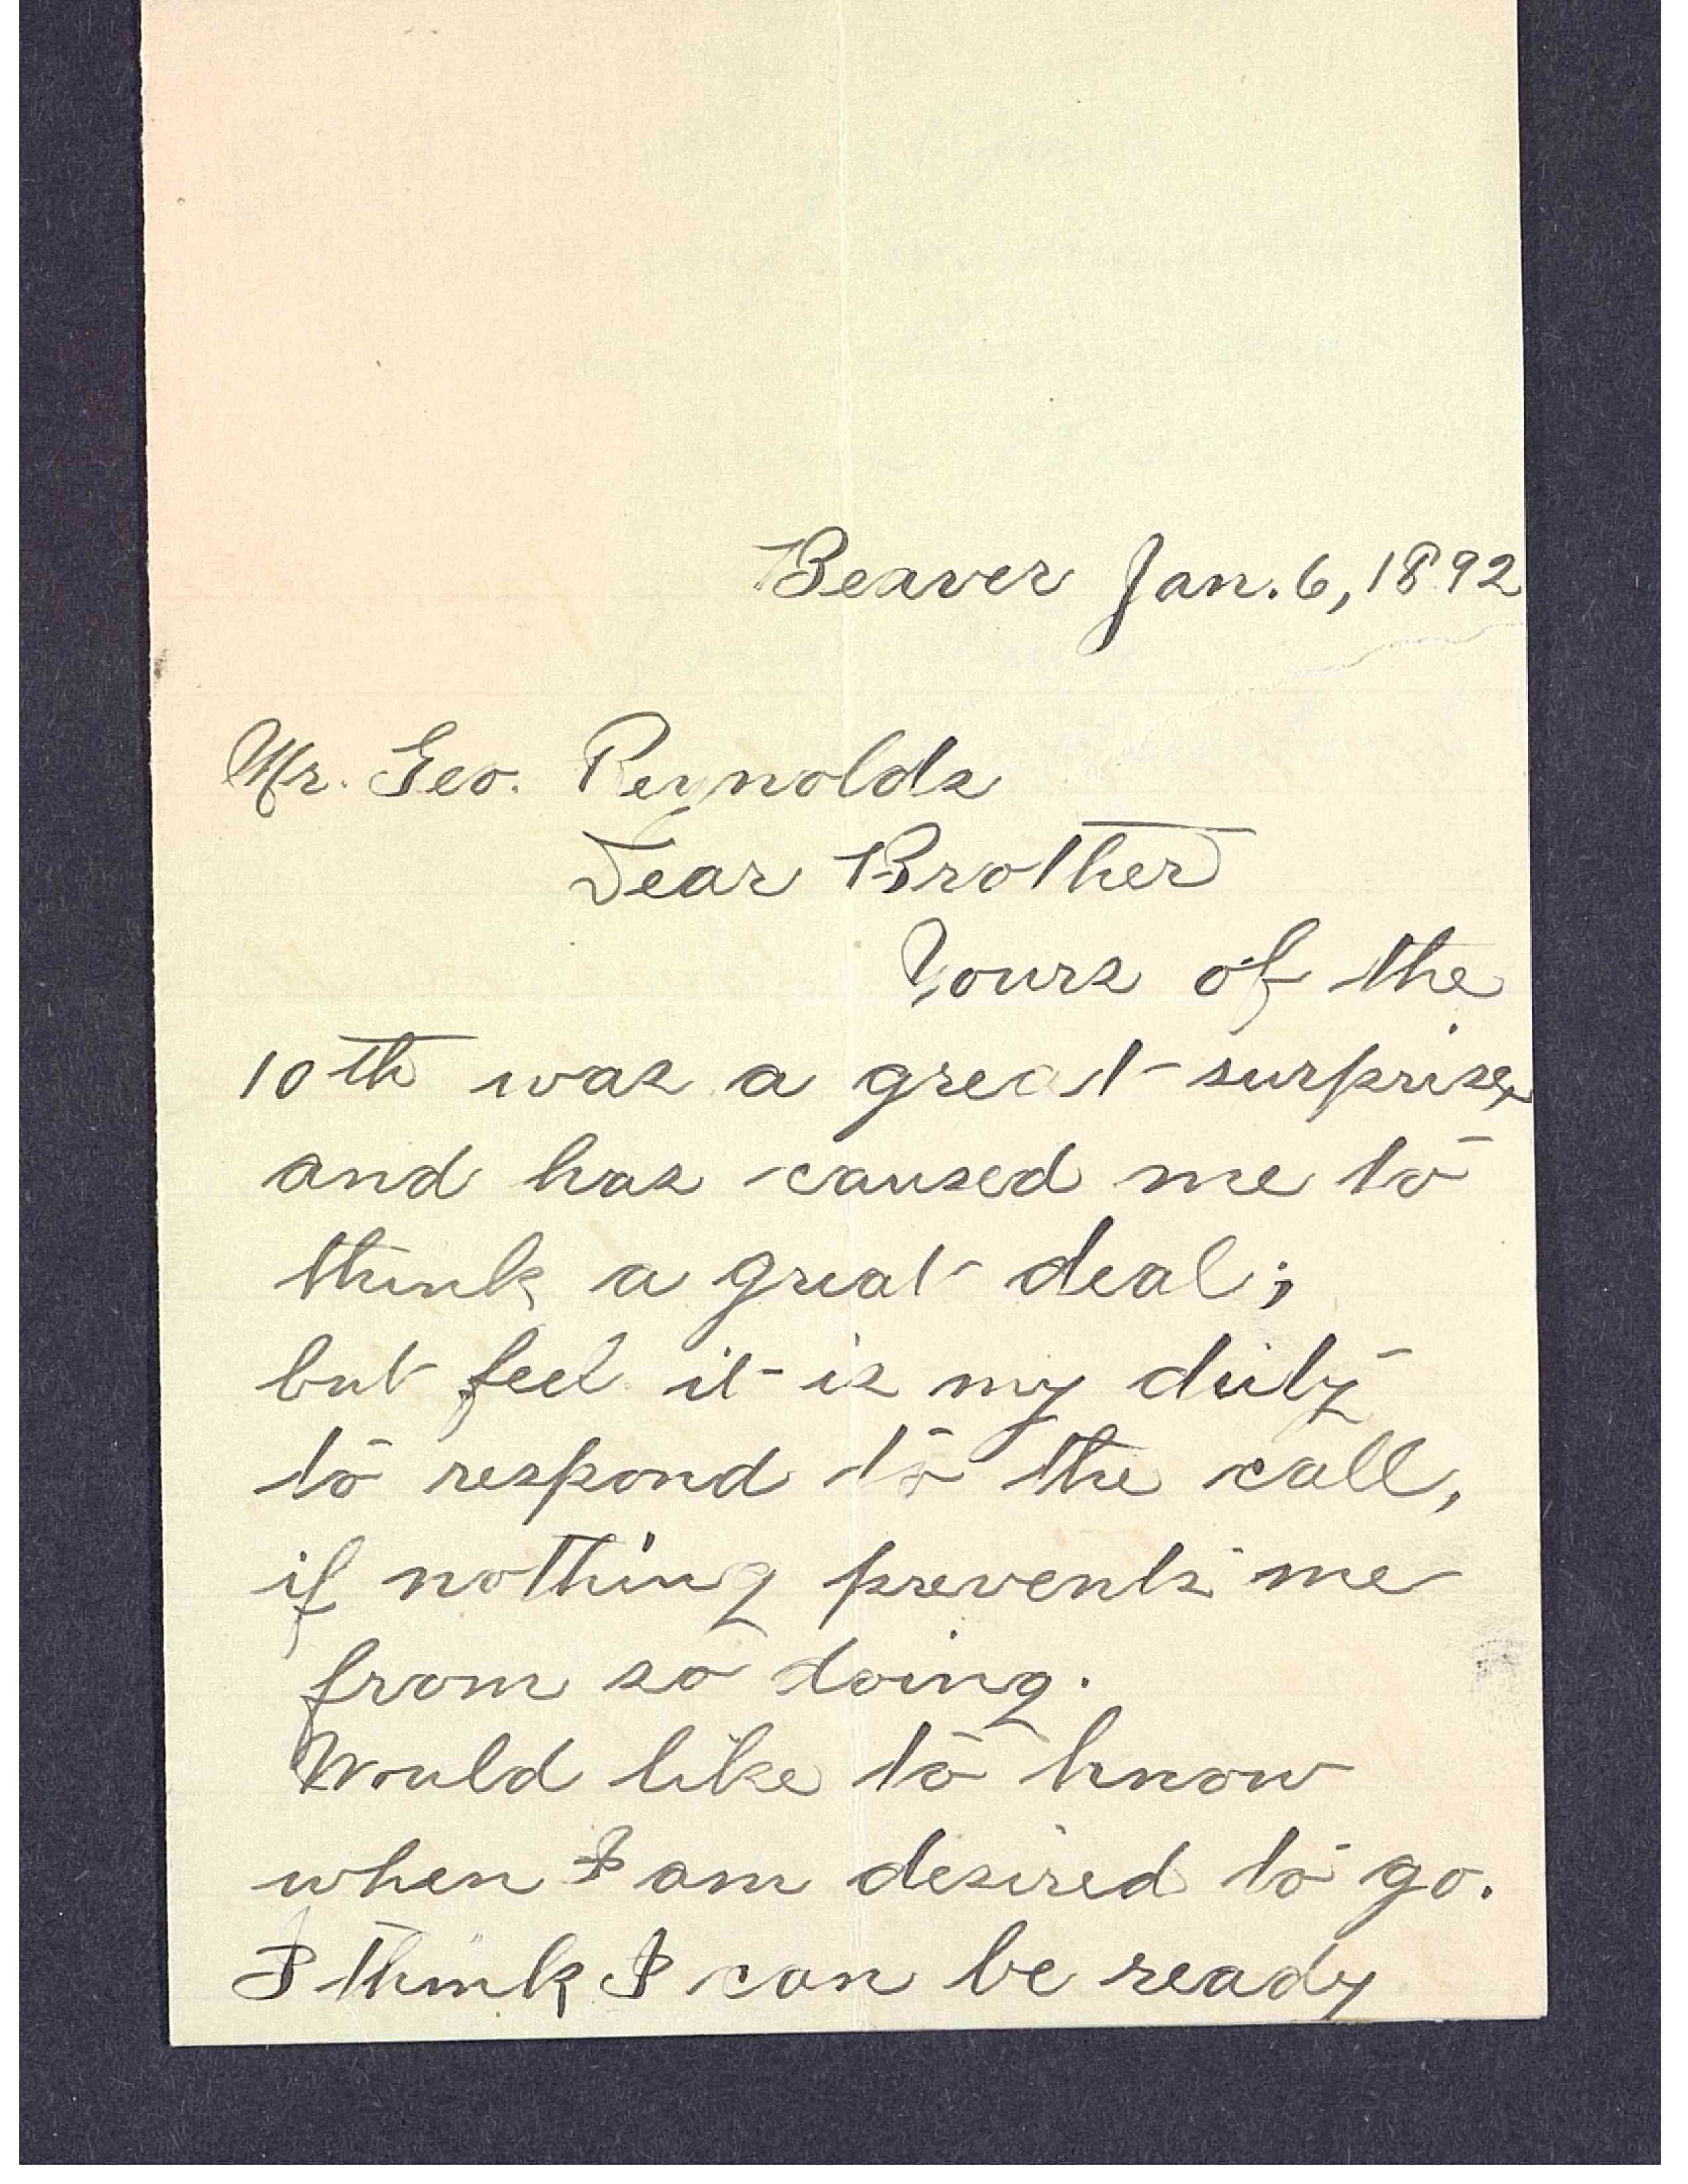 Beaver Jan. 6, 1892
Mr. Geo. Reynolds
Dear Brother
Yours of the
10th was a great surprise,
and has caused me to
think a great deal;
but feel it is my duty
to respond to the call,
if nothing prevents me
from so doing.
Would like to know
when I am desired to go.
I think I can be ready